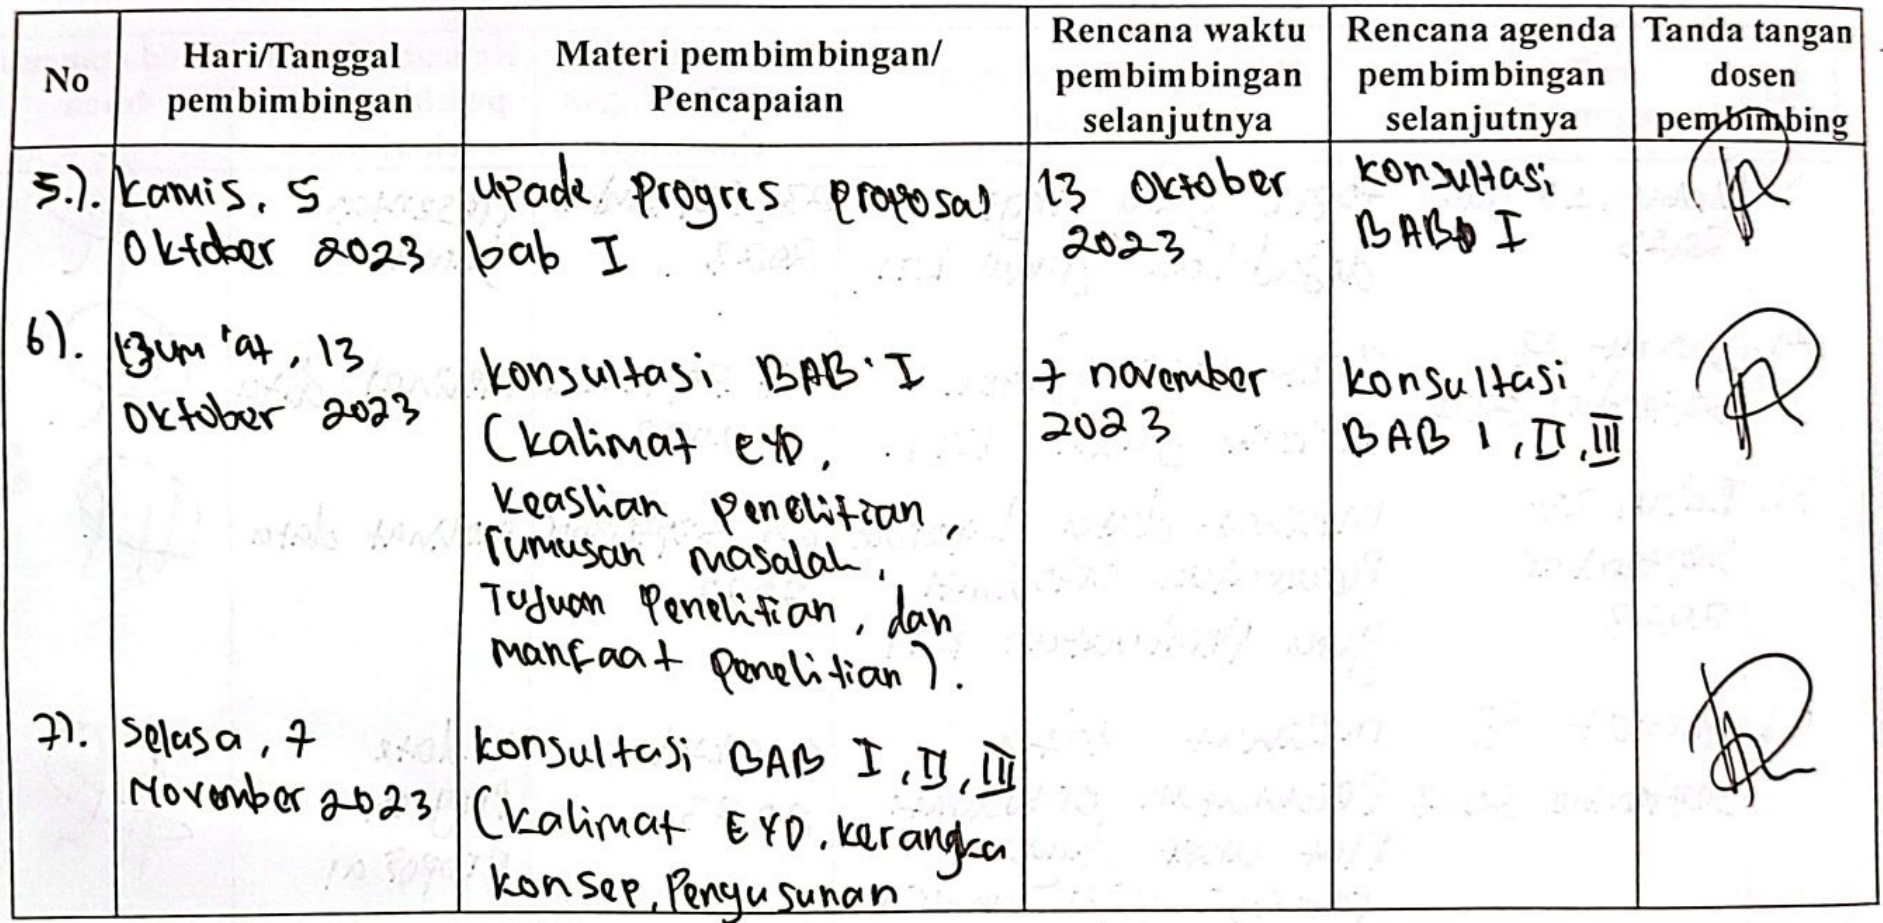 No
Hari/Tanggal
pembimbingan
Materi pembimbingan/
Pencapaian
Rencana waktu
pembimbingan
selanjutnya
Rencana agenda
pembimbingan
selanjutnya
Tanda tangan
dosen
pembimbing
5.).
Kamis, 5
Oktober 2023
upade progres proposal
bab I
13 Oktober
2023
Konsultasi
BAB I
6).
Jum'at, 13
Oktober 2023
Konsultasi BAB I
(Kalimat EYD,
Keaslian penelitian,
rumusan masalah,
Tujuan Penelitian, dan
manfaat penelitian).
7 november
2023
Konsultasi
BAB I, II, III
7).
Selasa, 7
November 2023
Konsultasi BAB I, II, III
(Kalimat EYD, kerangka
konsep, Penyusunan